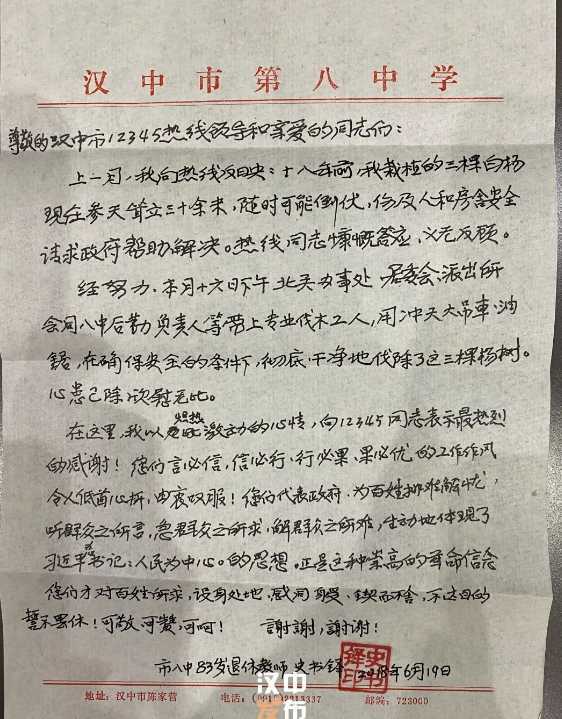 汉中市第八中学
尊敬的汉中市12345热线领导和亲爱的同志们:
上一周,我向热线反映:十八年前,我栽植的三棵白杨
现在参天耸立三十余米,随时可能倒伏,伤及人和房舍安全
请求政府帮助解决。热线同志慷慨答应,义无反顾。
经努力,本月十六日下午 北关办事处 居委会、派出所
会同八中后勤负责人等带上专业伐木工人,用冲天大吊車、油
锯,在确保安全的条件下,彻底、干净地伐除了这三棵杨树。
心患已除,欣慰无比。
在这里,我以炽热激动的心情,向12345同志表示最热烈
的感谢!您们言必信,信必行、行必果、果必优的工作作风
令人低首心折,由衷叹服!您们代表政府,为百姓排难解忧,
听群众之所言,急群众之所求,解群众之所难,生动地体现了
习近平总书记:人民为中心。的思想。正是这种崇高的革命信念
您们才对百姓所求,设身处地,感同身受、锲而不舍,不达目的
誓不罢休!可敬,可赞,可呵! 謝謝,謝谢!
市八中83岁退休教师 史书铎 2018年6月19日
地址:汉中市陈家营 电话:(0916)2213337 邮编:723000
汉中
发布